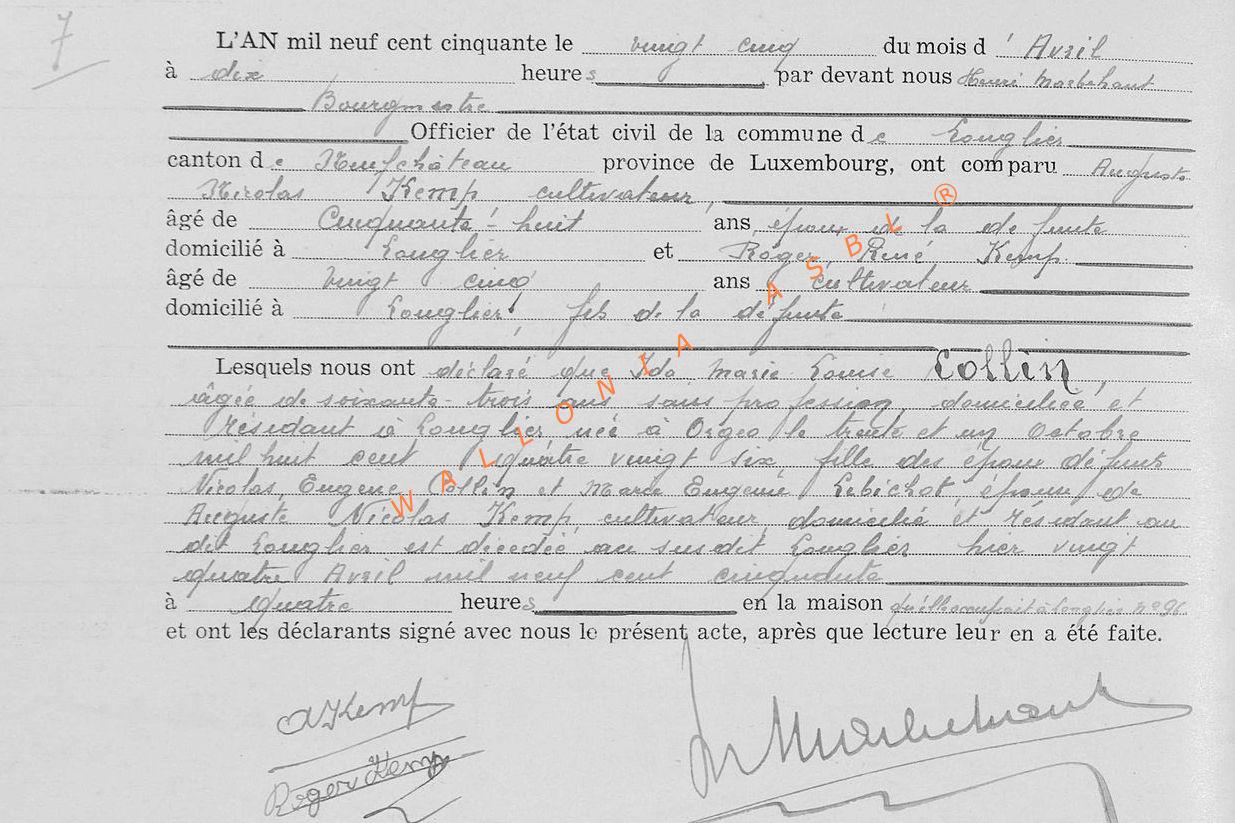 7
L'AN mil neuf cent cinquante le vingt cinq du mois d' Avril
à dix heures, par devant nous Henri Marbehant
Bourgmestre
Officier de l'état civil de la commune de Longlier
canton de Neufchâteau province de Luxembourg, ont comparu Auguste
Nicolas Kemp cultivateur,
âgé de Cinquante-huit ans, époux de la défunte
domicilié à Longlier et Roger, René, Kemp
âgé de vingt cinq ans cultivateur
domicilié à Longlier, fils de la défunte
Lesquels nous ont déclaré que Ida Marie Louise Collin,
âgée de soixante-trois ans sans profession, domiciliée et
résidant à Longlier née à Orgeo le trente et un Octobre
mil huit cent quatre vingt six, fille des époux défunts
Nicolas, Eugène, Collin et Marie Eugénie Lebichot, épouse de
Auguste Nicolas Kemp, cultivateur, domicilié et résidant au
dit Longlier est décédée au susdit Longlier hier vingt
quatre Avril mil neuf cent cinquante
à quatre heures en la maison qu'elle occupait à Longlier n° 96
et ont les déclarants signé avec nous le présent acte, après que lecture leur en a été faite.
A Kemp
Roger Kemp
H Marbehant
WALLONIA ASBL ®